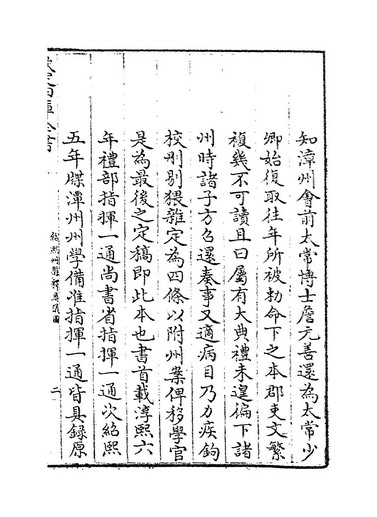 知漳州會前太常博士詹元善還為太常少
卿始復取往年所被勅命下之本郡吏文繁
複幾不可讀且曰屬有大典禮未遑徧下諸
州時諸子方召還奏事又適病目乃力疾鉤
校刪剔猥雜定為四條以附州案俾移學官
是為最後之定稿即此本也書首載淳熙六
年禮部指揮一通尚書省指揮一通次紹熙
五年牒潭州州學備准指揮一通皆具録原
欽定四庫全書
紹熙州縣釋奠儀圖
二